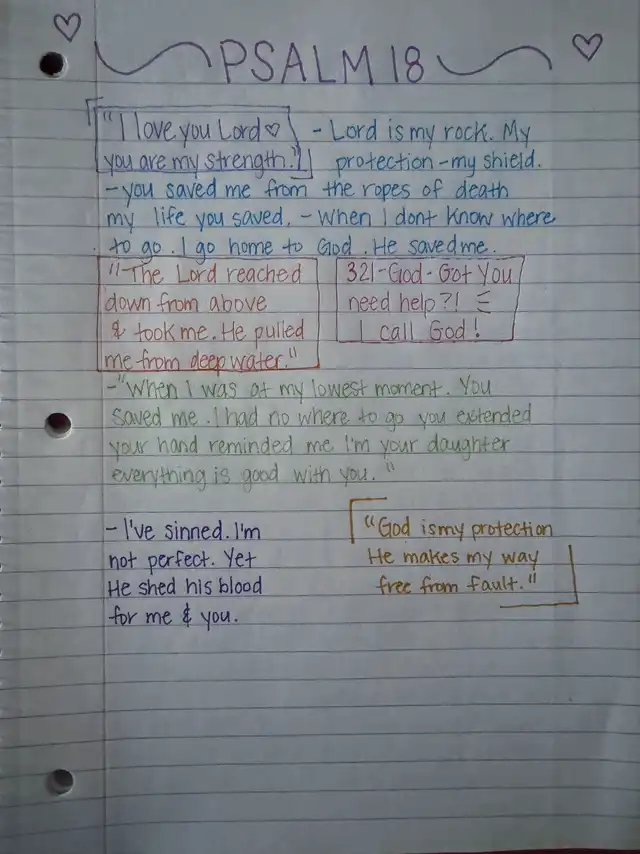 PSALM 18
"I love you Lord♡
you are my strength."
- Lord is my rock. My
protection - my shield.
- you saved me from the ropes of death
my life you saved. - When I dont know where
to go. I go home to God. He saved me.
"The Lord reached
down from above
& took me. He pulled
me from deep water."
321-God-Got You
need help?!
I call God!
-"When I was at my lowest moment. You
saved me. I had no where to go you extended
your hand reminded me I'm your daughter
everything is good with you."
- I've sinned. I'm
not perfect. Yet
He shed his blood
for me & you.
"God is my protection
He makes my way
free from fault."